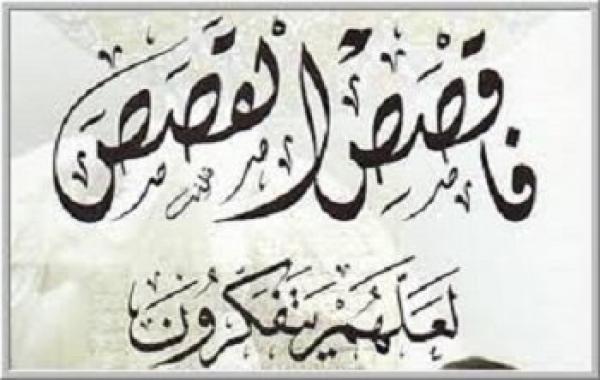 فَاقْصُصِ الْقَصَصَ
لَعَلَّهُمْ يَتَفَكَّرُونَ